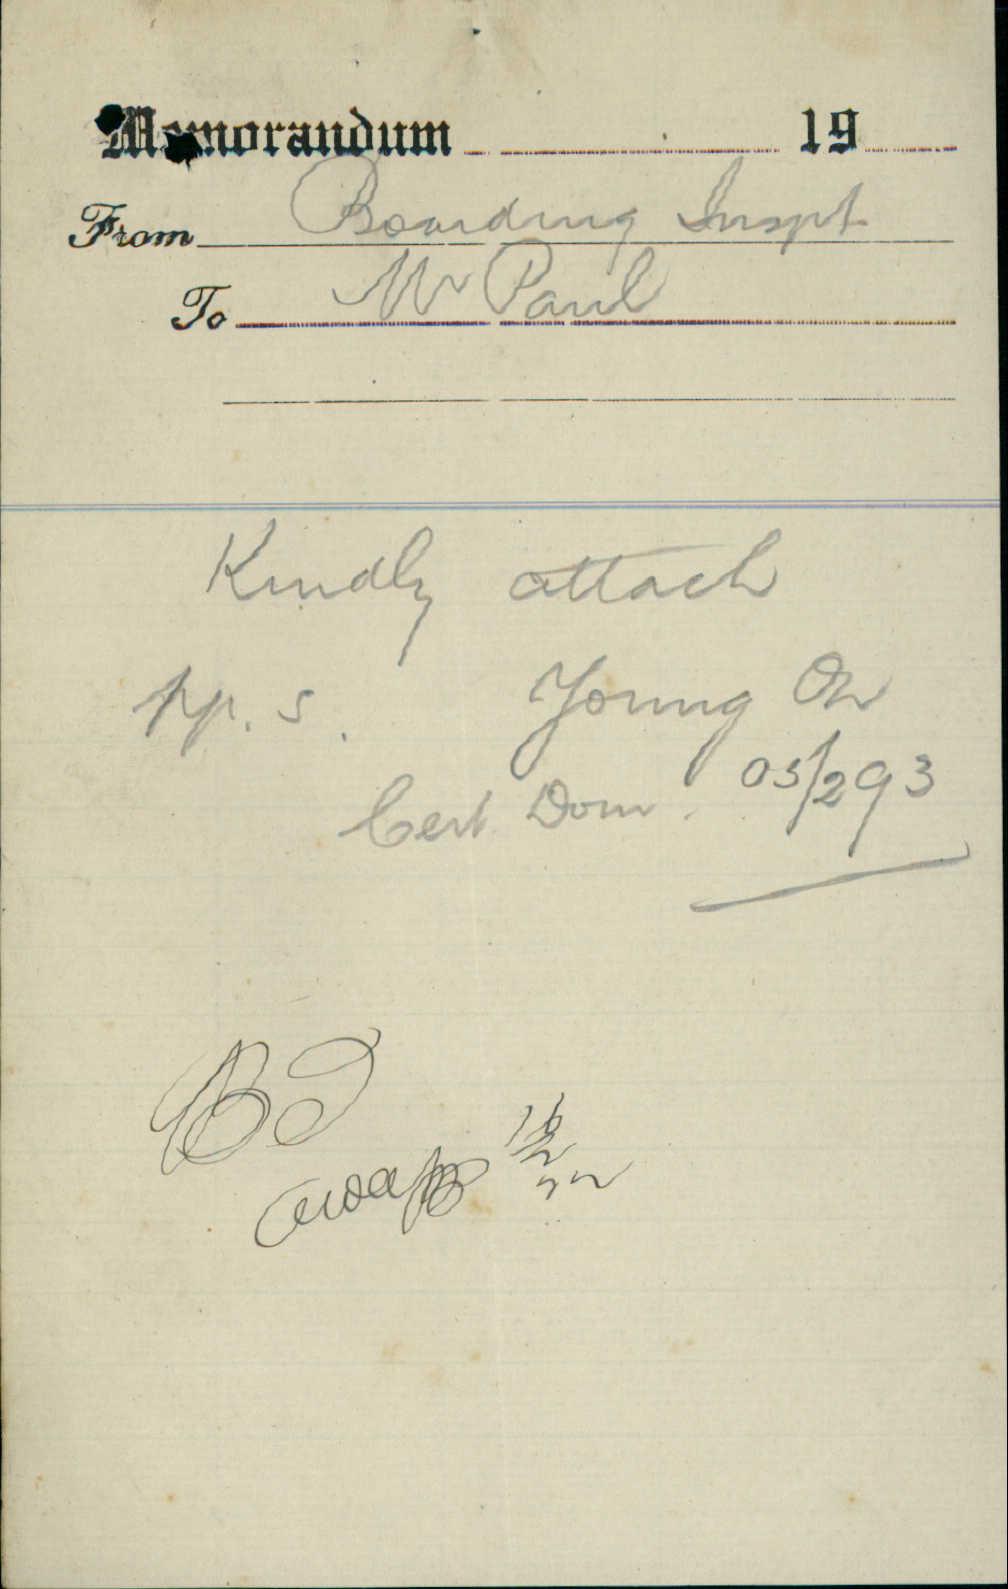 Memorandum 19
From Boarding Inspt
To Mr Paul
Kindly attach
pp. s. Young On
Cert Dom. 03/293